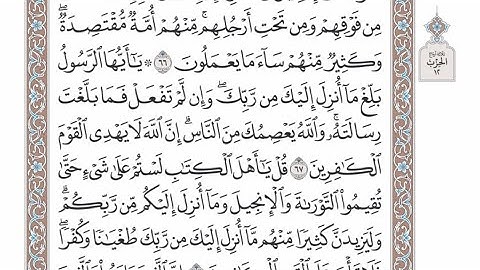 مِن فَوْقِهِمْ وَمِن تَحْتِ أَرْجُلِهِمۚ مِّنْهُمْ أُمَّةٌ مُّقْتَصِدَةٌۖ
وَكَثِيرٌ مِّنْهُمْ سَآءَ مَا يَعْمَلُونَ ٦٦ ۞ يَٰٓأَيُّهَا ٱلرَّسُولُ
بَلِّغْ مَآ أُنزِلَ إِلَيْكَ مِن رَّبِّكَۖ وَإِن لَّمْ تَفْعَلْ فَمَا بَلَّغْتَ
رِسَالَتَهُۥۚ وَٱللَّهُ يَعْصِمُكَ مِنَ ٱلنَّاسِۗ إِنَّ ٱللَّهَ لَا يَهْدِى ٱلْقَوْمَ
ٱلْكَٰفِرِينَ ٦٧ قُلْ يَٰٓأَهْلَ ٱلْكِتَٰبِ لَسْتُمْ عَلَىٰ شَىْءٍ حَتَّىٰ
تُقِيمُوا۟ ٱلتَّوْرَىٰةَ وَٱلْإِنجِيلَ وَمَآ أُنزِلَ إِلَيْكُم مِّن رَّبِّكُمْۗ
وَلَيَزِيدَنَّ كَثِيرًا مِّنْهُم مَّآ أُنزِلَ إِلَيْكَ مِن رَّبِّكَ طُغْيَٰنًا وَكُفْرًاۖ
الحِزْب
١٢